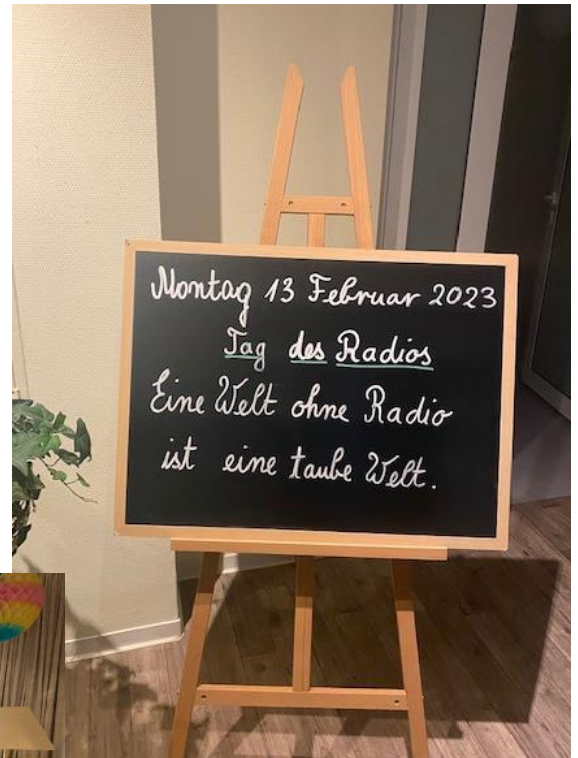 Montag 13 Februar 2023
Tag des Radios
Eine Welt ohne Radio
ist eine taube Welt.